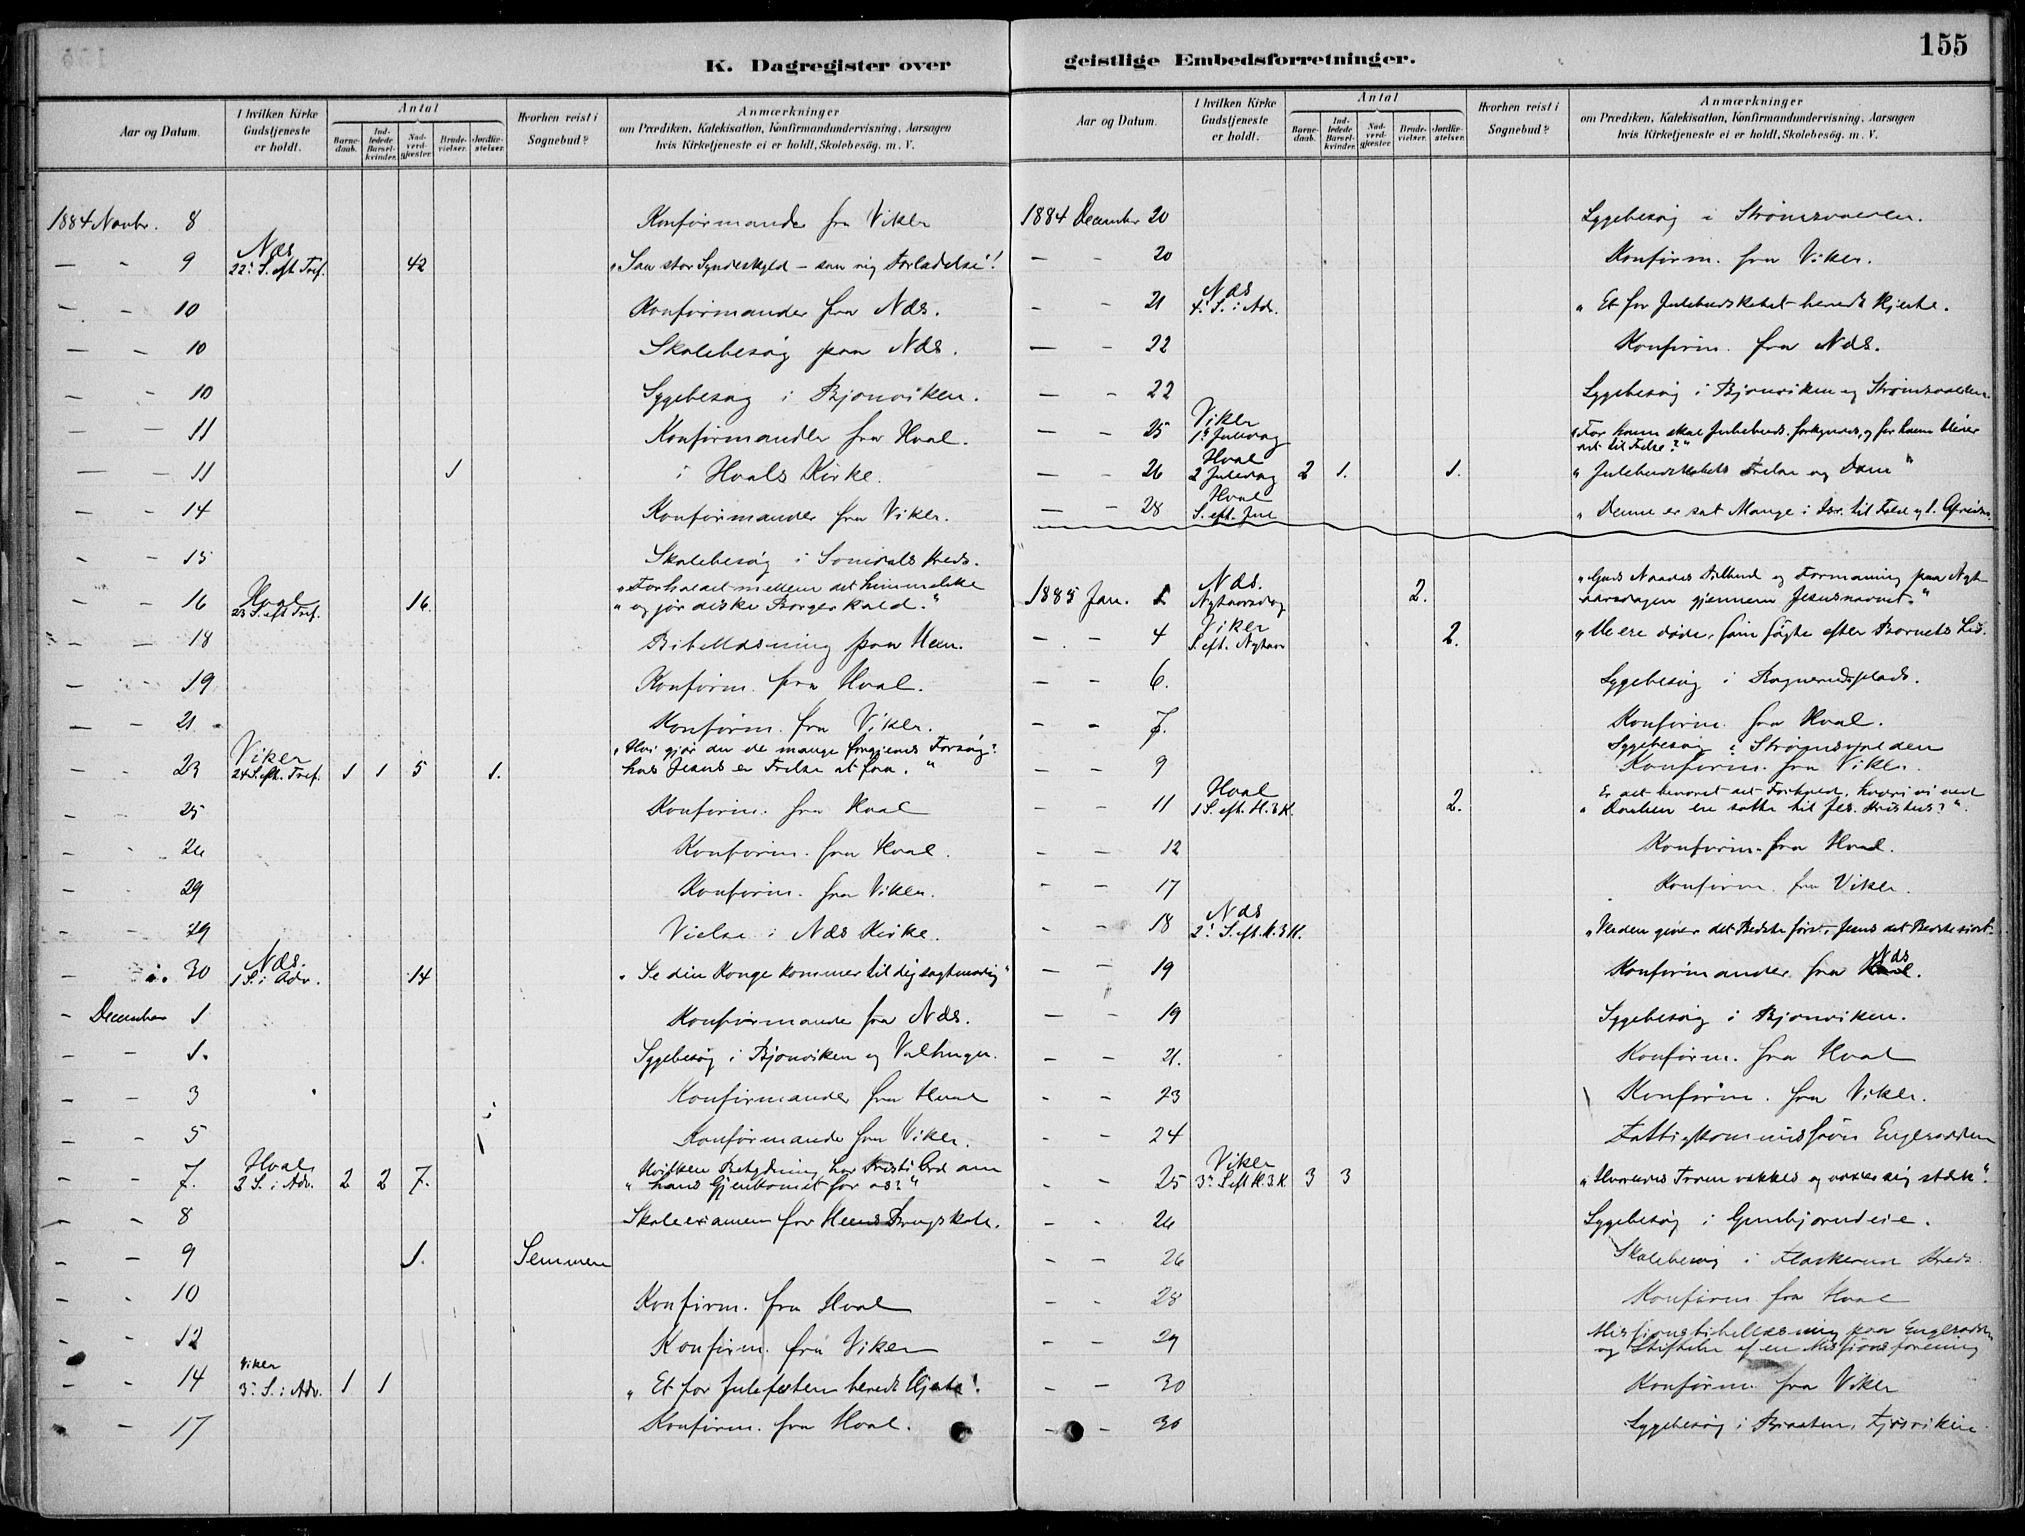 155
K. Dagregister over geistlige Embedsforretninger.
Aar og Datum.
I hvilken Kirke Gudstjeneste er holdt.
Antal
Barnedaab.
Indledede Barselkvinder.
Nadverdgjæster.
Brudevielser.
Jordfæstelser.
Hvorhen reist i Sognebud?
Anmærkninger
om Prædiken, Katekisation, Konfirmandundervisning, Aarsagen
hvis Kirketjeneste ei er holdt, Skolebesög. m. V.
1884 Novbr. 8 Konfirmander fra Viker
— - 9 Næs 22: S. eft. Tref. 42 "Saa stor Syndeskyld – saa rig Forladelse"!
— - 10 Konfirmander fra Næs.
— - 10 Skolebesøg paa Næs.
— - 10 Sygebesøg i Bjonviken.
— - 11 Konfirmander fra Hval.
— - 11 1 i Hvals Kirke.
— - 14 Konfirmander fra Viker.
- - 15 Skolebesøg i Kreds.
- - 16 Hval 23 S. eft Tref. 16. "Forholdet mellem det himmelske
" og jordiske Borgerkald."
- - 18 Bibellæsning paa Heen.
- - 19 Konfirm. fra Hval.
— - 21 Konfirm. fra Viker.
- - 23 Viker 24 S. eft. Tref. 1 1 5 1. "Hvi gjør du de mange forgjæves Forsøg?
hos Jesus er Frelse at faa."
- - 25 Konfirm. fra Hval
- - 26 Konfirm. fra Hval.
- - 29 Konfirm. fra Viker.
- - 29 Vielse i Næs Kirke.
- - 30 Næs. 1 S. i Adv. 14 "Se din Konge kommer til dig sagtmodig"
- December 1 Konfirmander fra Næs.
- - 1. Sygebesøg i Bjonviken og
- - 3 Konfirmander fra Hval
- - 5 Konfirmander fra Viker.
- - 7. Hval 2 S. i Adv. 2 2 7. Hvilken Betydning har Kristi Ord om
" hans Gjenkomst for os?"
- - 8 Skoleexamen for Heens Brugskole.
- - 9 1. Semmen
- - 10 Konfirm. fra Hval
- - 12 Konfirm. fra Viker
- - 14 Viker 3: S. i Adv. 1 1 "Et for Julefesten beredt Hjerte"!
- 17 Konfirm. fra Hval.
Aar og Datum.
I hvilken Kirke Gudstjeneste er holdt.
Antal
Barnedaab.
Indledede Barselkvinder.
Nadverdgjæster.
Brudevielser.
Jordfæstelser.
Hvorhen reist i Sognebud?
Anmærkninger
om Prædiken, Katekisation, Konfirmandundervisning, Aarsagen
hvis Kirketjeneste ei er holdt, Skolebesög. m. V.
1884 December 20 Sygebesøg i
— - 20 Konfirm. fra Viker.
- - 21 Næs 4: S. i Adv. "Et for Julebudskabet beredt Hjerte.
— - 22 Konfirm. fra Næs.
— - 22 Sygebesøg i Bjonviken og
— - 25 Viker 1ste Juledag "For hvem skal Julebudsk. forkyndes, og for hvem bliver
det til Frelse?"
— - 26 Hval 2 Juledag 2 1. 1. "Julebudskabets Frelse og Dom"
— - 28 Hval S. eft. Jul "Denne er sat Mange i Isr. til Fald og t. Opreisn.
1885 Jan. 1 Næs. Nytaarsdag 2. "Guds Naades Tilbud og Formaning paa Nyt-
aarsdagen gjennem Jesusnavnet."
- - 4 Viker S. eft. Nytaar 2. "De ere døde, som søgte efter Barnets Liv.
- - 6. Sygebesøg i
- - 7. Konfirm. fra Hval.
Sygebesøg i
- 9 Konfirm. fra Viker.
- - 11 Hval 1 S. eft. H. 3 K. 2. Er det bevaret det Forhold, hvori vi ved
" Daaben ere satte til Jes. Kristus?".
- - 12 Konfirm. fra Hval.
- - 17 Konfirm. fra Viker.
- - 18 Næs 2: S. eft. H. 3 K. "Verden giver det Bedste først, Jesus det Bedste sidst.
— - 19 Konfirmander fra Næs.
— - 19 Sygebesøg i Bjonviken.
- - 21. Konfirm. fra Hval
- - 23 Konfirm. fra Viker.
- - 24 Fattigkommission
- - 25 Viker 3: S. eft H. 3 K. 3 3 "Hvorledes Troen vækkes og viser sig stærk".
- - 26 Sygebesøg i
- - 26 Skolebesøg i Kreds.
- - 28 Konfirm fra Hval
- - 29 Missionsbibellæsning paa
og Stiftelse af en Missionsforening
- - 30 Konfirm. fra Viker
- - 30 Sygebesøg i Braaten,